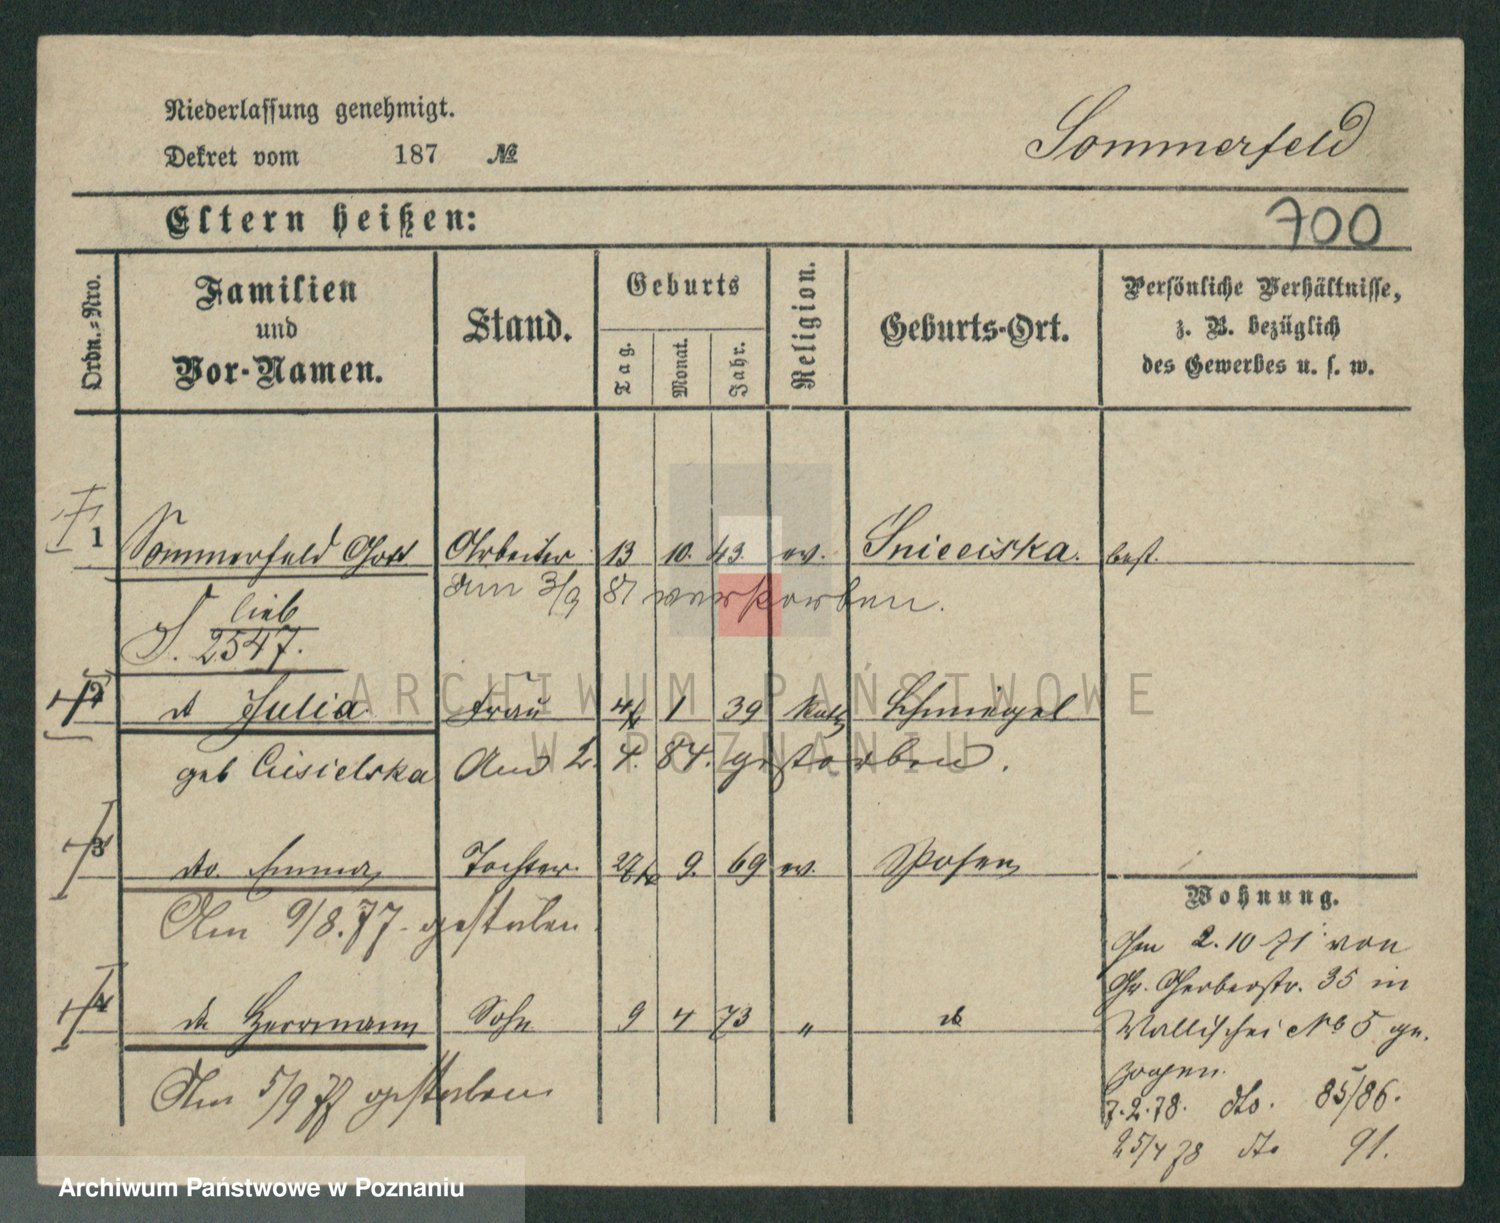 Niederlassung genehmigt.
Sommerfeld
Dekret vom 187 №
Eltern heißen:
700
Ordn.=Nro.
Familien
und
Vor-Namen.
Stand.
Geburts
Tag.
Monat.
Jahr.
Religion.
Geburts-Ort.
Persönliche Verhältnisse,
z. B. bezüglich
des Gewerbes u. s. w.
1 Sommerfeld Gott Arbeiter 13 10. 43. ev. Snieciska. best.
lieb am 3/9 81 verstorben.
S. 2547.
2 dt Julia Frau 4/ 1 39 kath Schmiegel
geb Ciesielska Am 2. 4. 84. gestorben.
3 do. Emma Tochter 27/ 9. 69 ev. Posen
Am 9/8.77. gestorben
4 do Herrmann Sohn 9 4 73 " do
Am 5/9 77 gestorben
Wohnung.
Am 2.10 71 von
Gr. Gerberstr. 35 in
Wallischei No 5 ge-
zogen.
7.2.78. dto. 85/86.
25/4 78 dto 91.
ARCHIWUM PAŃSTWOWE
W POZNANIU
Archiwum Państwowe w Poznaniu